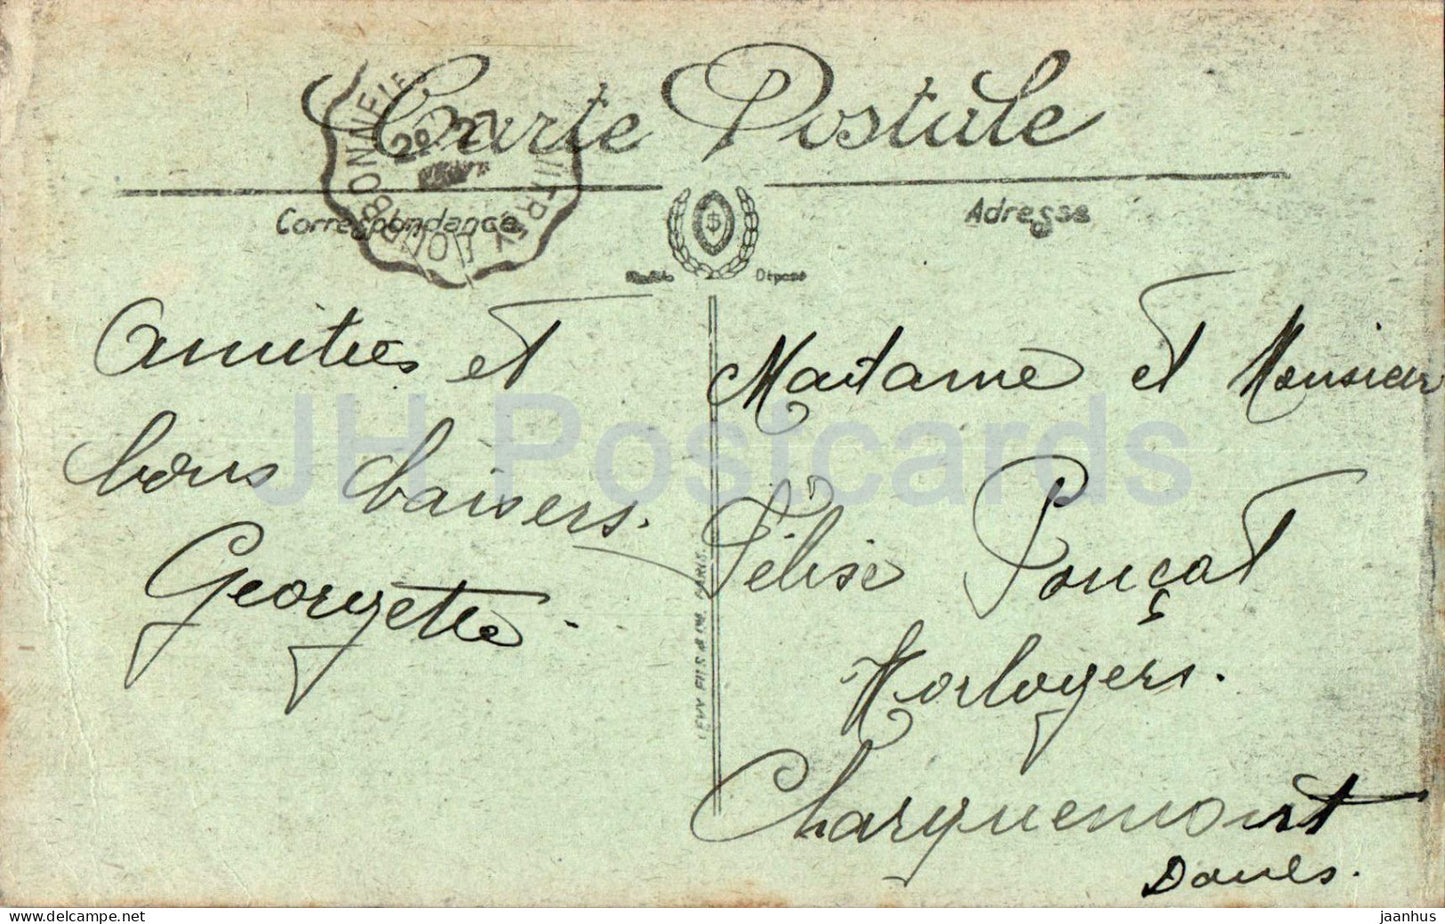 Carte Postale
Correspondance
Adresse
VITREY BOURBONNE
29
Déposé
Amitiés et
bons baisers.
Georgette.
Madame et Monsieur
Félise Ponçot
Horlogers.
Charquemont
Doubs.
LEVY FILS & Cie PARIS
JH Postcards
delcampe.net
jaanhus